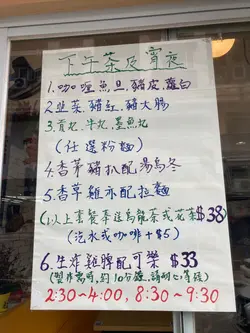 下午茶及宵夜
1.咖喱魚旦,豬皮,蘿白
2.韭菜,豬紅,豬大腸
3.貢丸,牛丸,墨魚丸
(任選粉麵)
4.香茅豬扒配湯烏冬
5.香草雞亦配拉麵
(以上套餐奉送烏龍茶或花茶$38)
(汽水或咖啡+$5)
6.生炸雞脾配可樂 $33
(製作需時,約10分鐘,請耐心等候)
2:30~4:00, 8:30~9:30